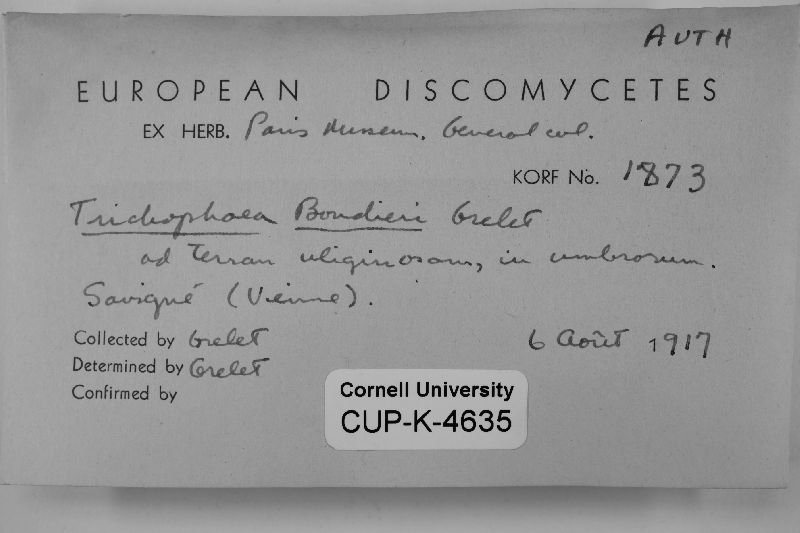 AUTH
EUROPEAN DISCOMYCETES
EX HERB. Paris Museum, General col.
KORF No. 1873
Trichophaea Boudieri Grelet
ad terram uliginosam, in umbrosum.
Savigné (Vienne).
Collected by Grelet 6 Août 1917
Determined by Grelet
Confirmed by
Cornell University
CUP-K-4635